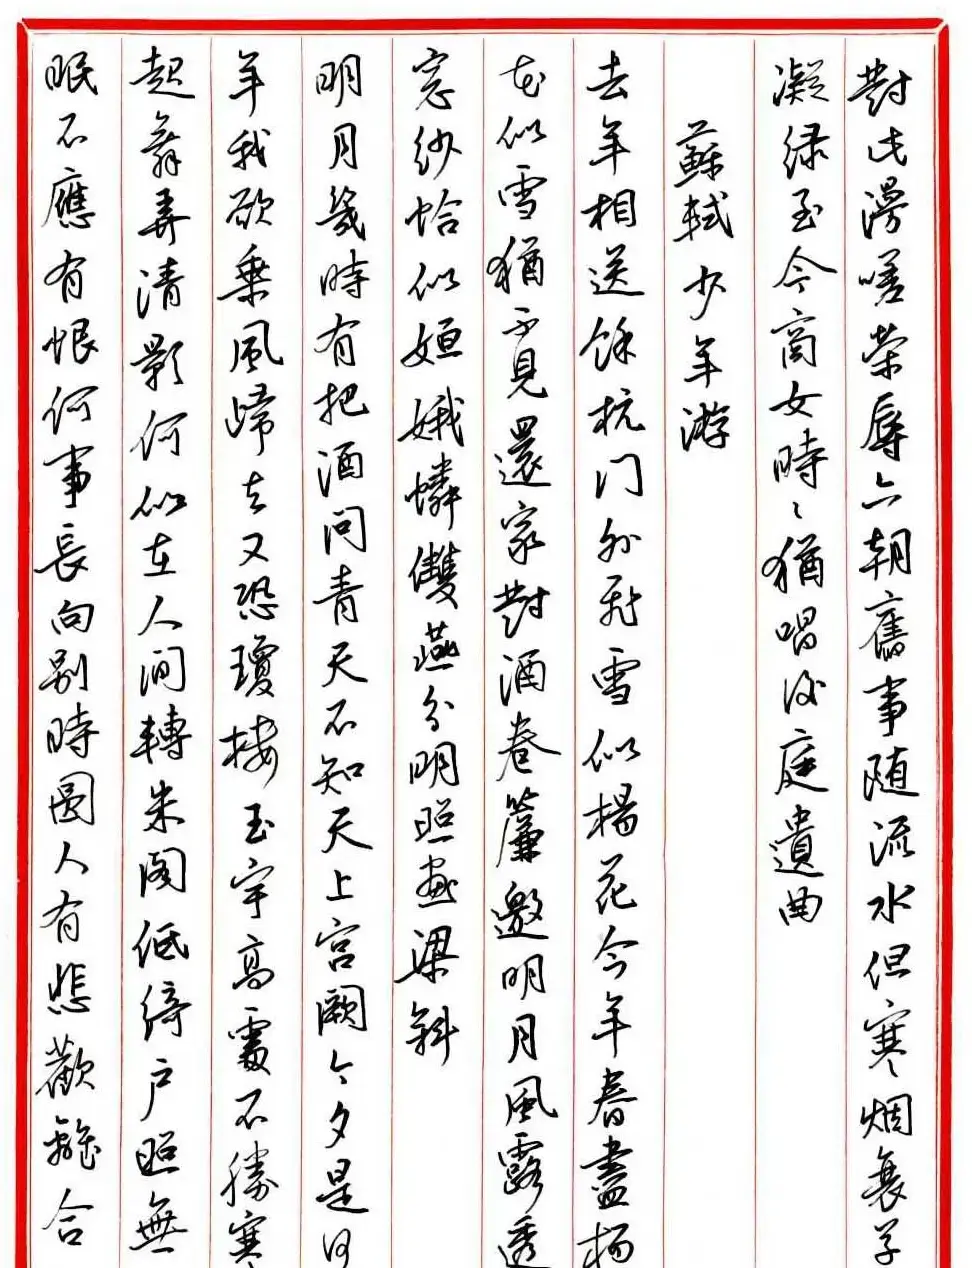 對此漫嗟榮辱六朝舊事随流水但寒烟衰草
凝绿至今商女時〻猶唱後庭遺曲
蘇軾少年游
去年相送餘杭门外飛雪似楊花今年春盡楊
花似雪猶不見還家對酒卷簾邀明月風露透
窓纱恰似姮娥憐雙燕分明照畫梁斜
明月幾時有把酒问青天不知天上宫阙今夕是何
年我欲乗風歸去又恐瓊楼玉宇高處不勝寒
起舞弄清影何似在人间轉朱阁低绮户照無
眠不應有恨何事長向别時圆人有悲歡離合